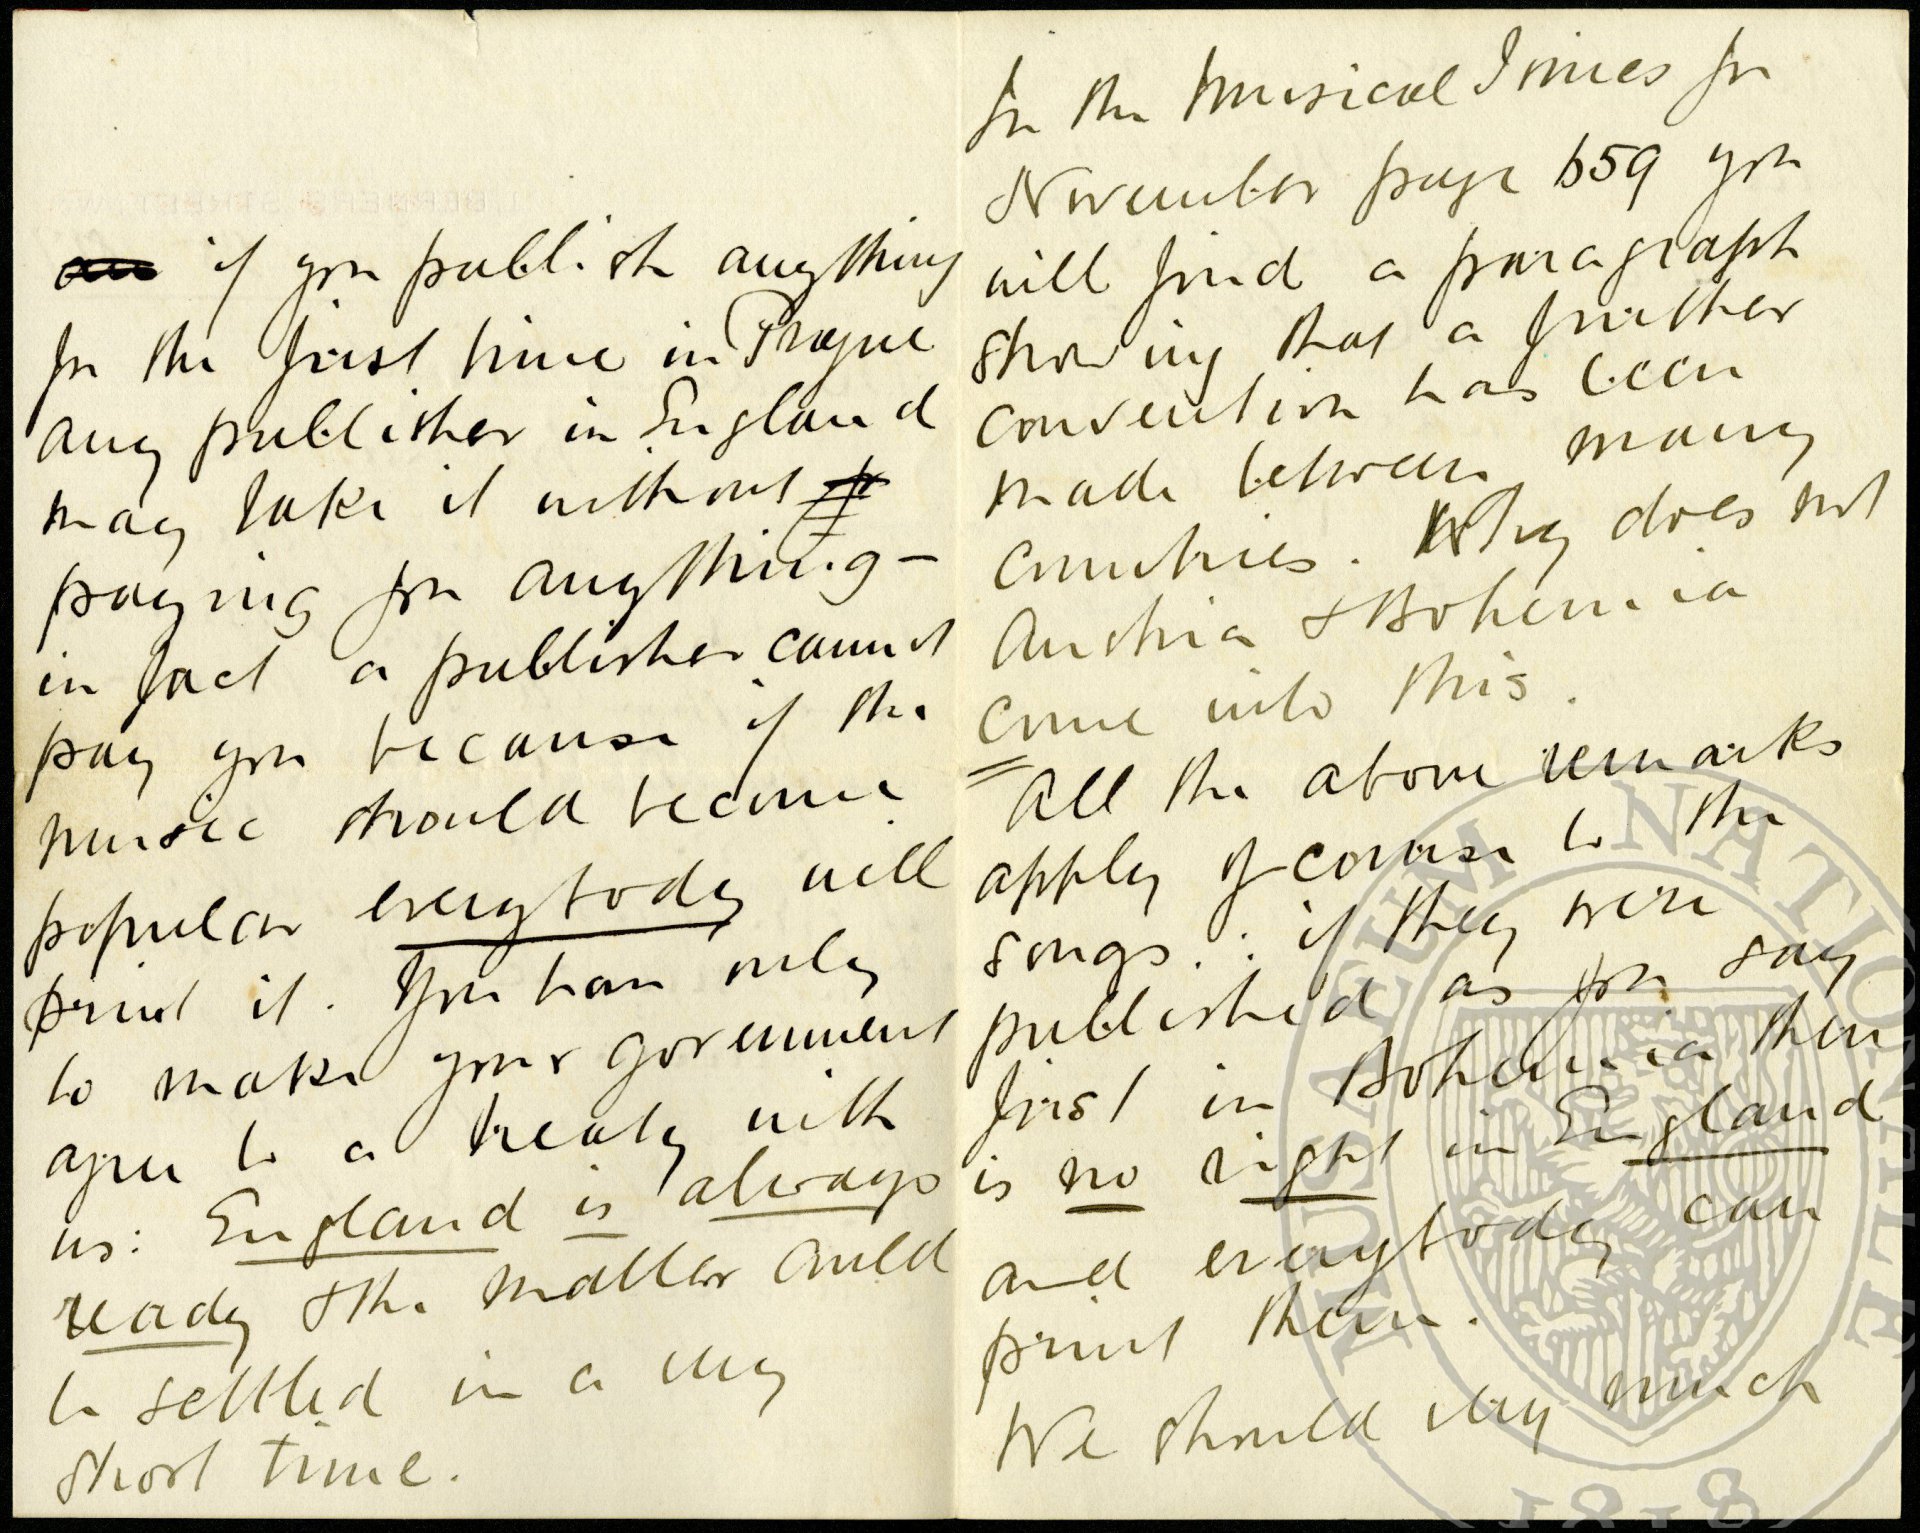 if you publish anything
for the first time in Prague
any publisher in England
may take it without
paying for anything –
in fact a publisher cannot
pay you because if the
music should become
popular everybody will
print it. You have only
to make your government
agree to a treaty with
us: England is always
ready & the matter could
be settled in a very
short time.
In the Musical Times for
November page 659 you
will find a paragraph
showing that a further
convention has been
made between many
countries. Why does not
Austria & Bohemia
come into this.
All the above remarks
apply of course to the
songs: if they were
published as you say
first in Bohemia there
is no right in England
and everybody can
print them.
We should very much
MUSAEUM NATIONALE
1818